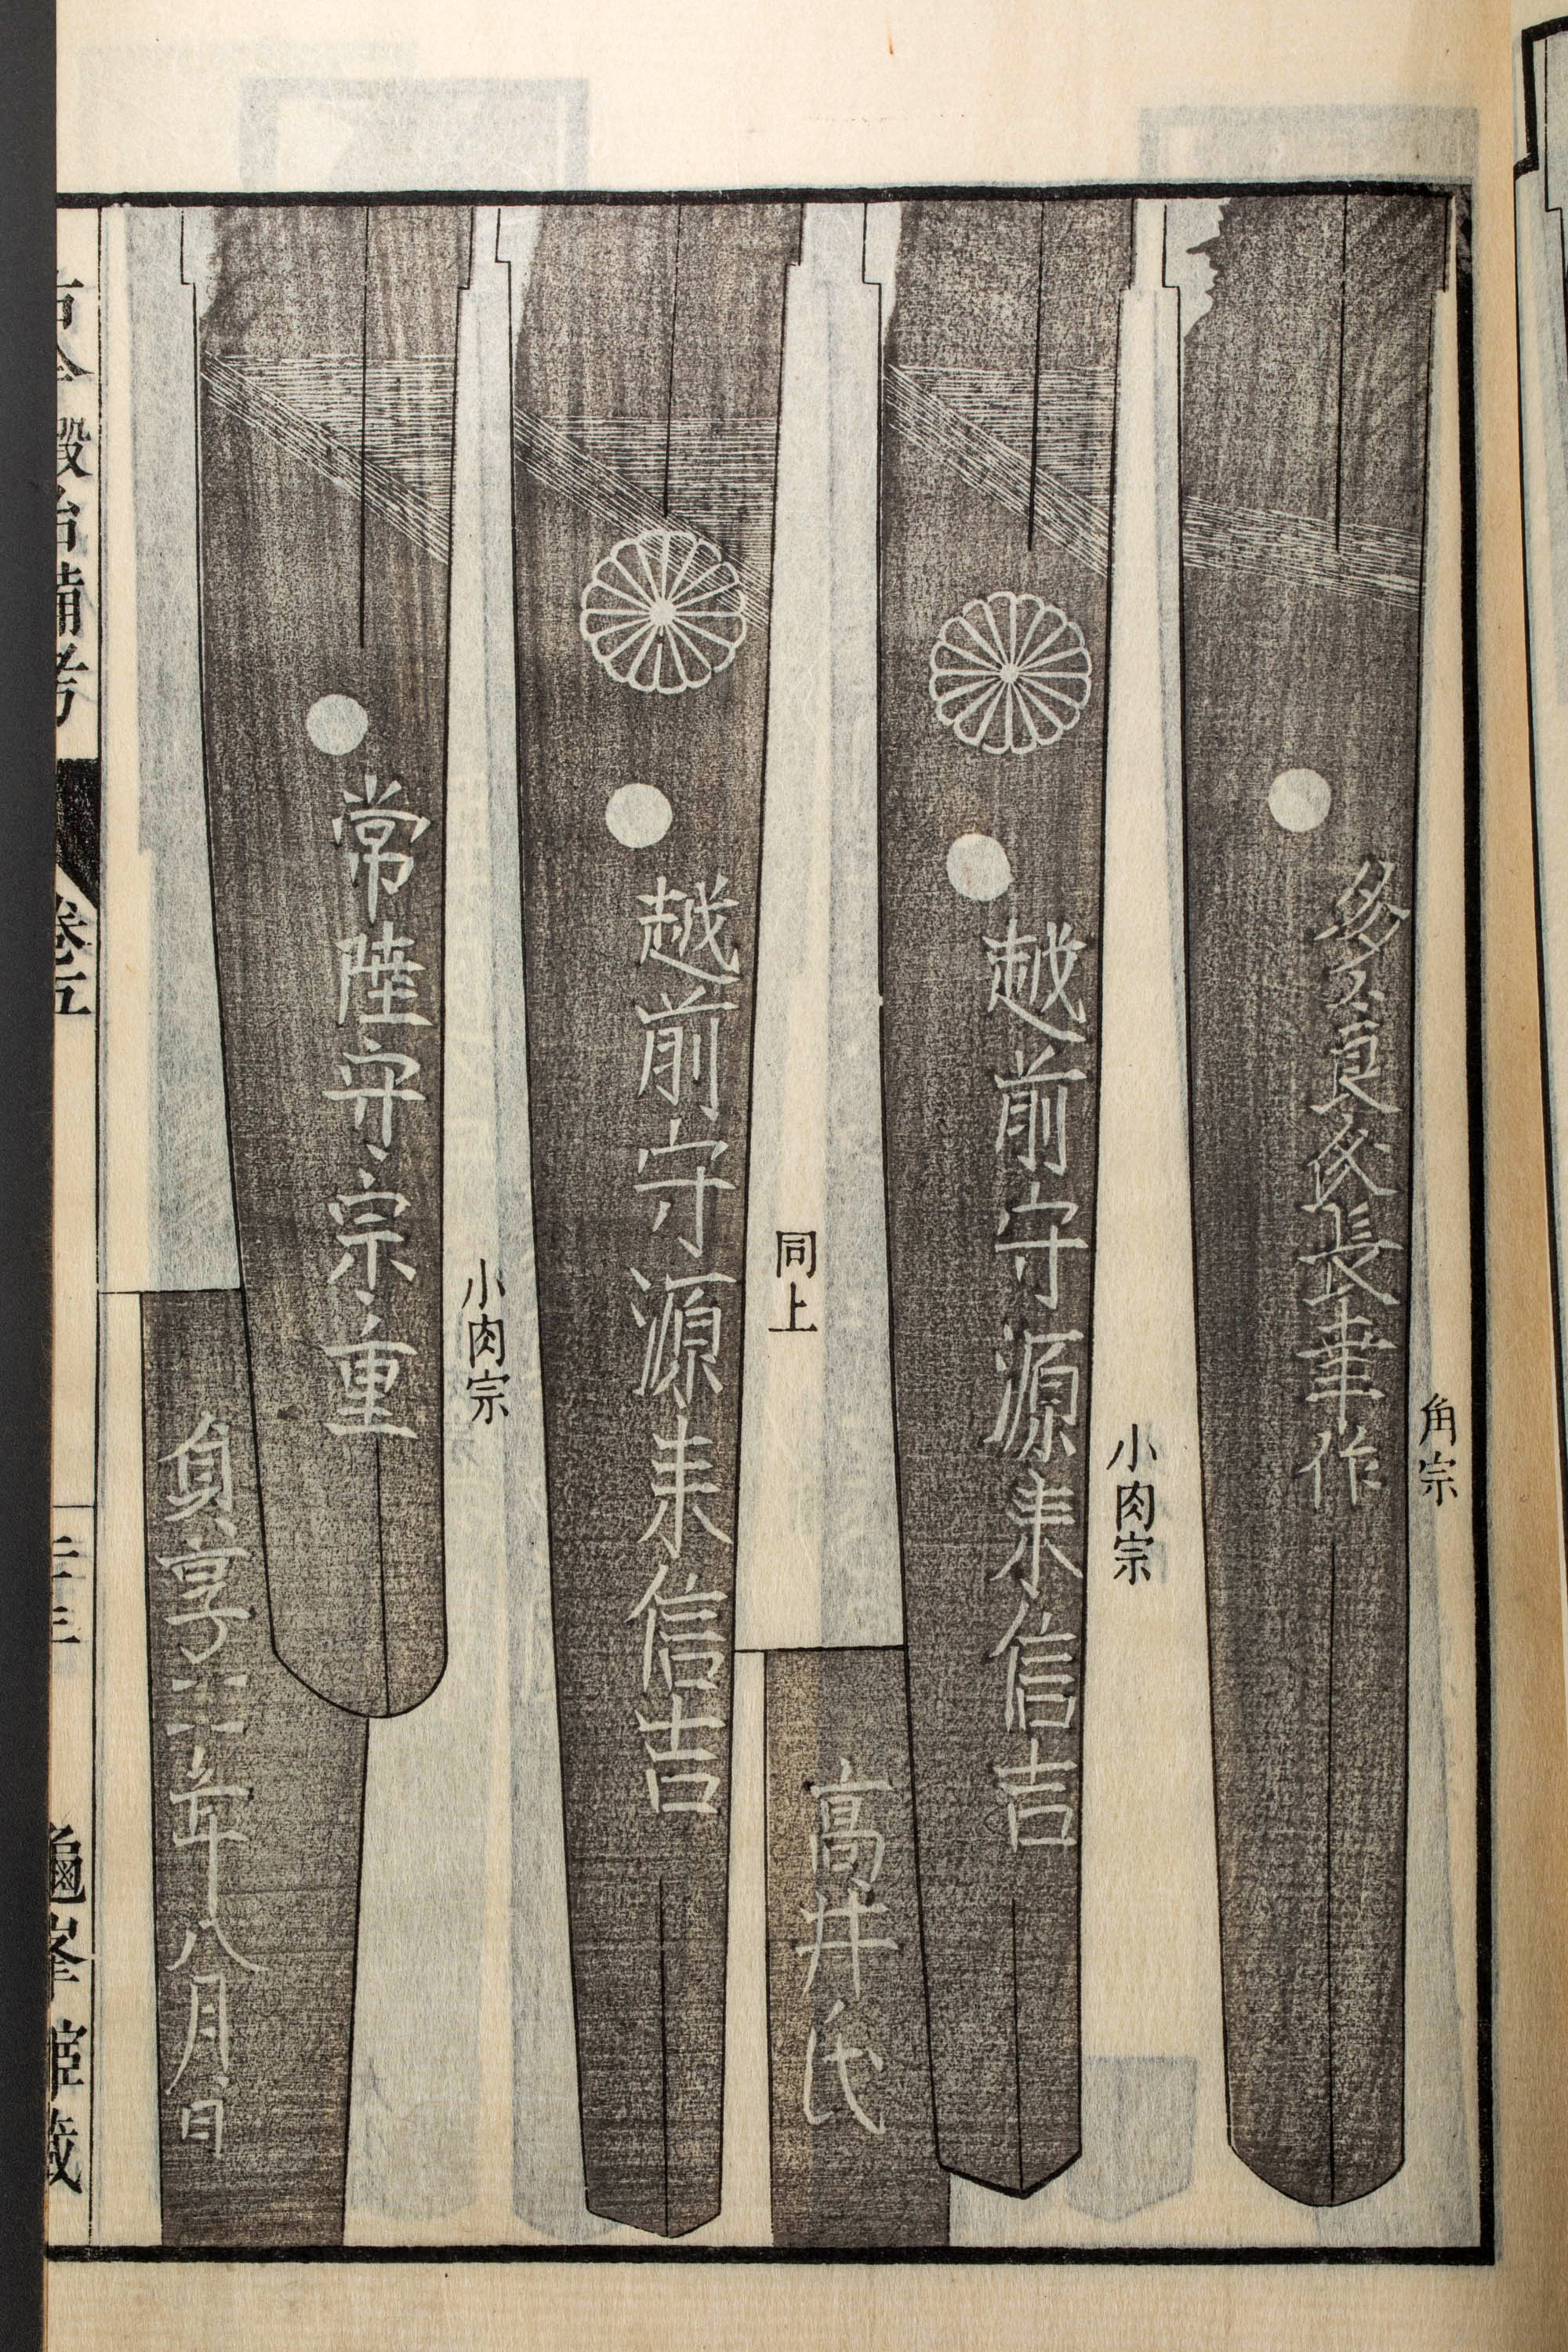 角宗
多々良氏長幸作
小肉宗
越前守源来信吉
高井氏
同上
越前守源来信吉
小肉宗
常陸守宗重
貞享二二年八月日
古今鍛冶備考
卷五
龜峯館藏